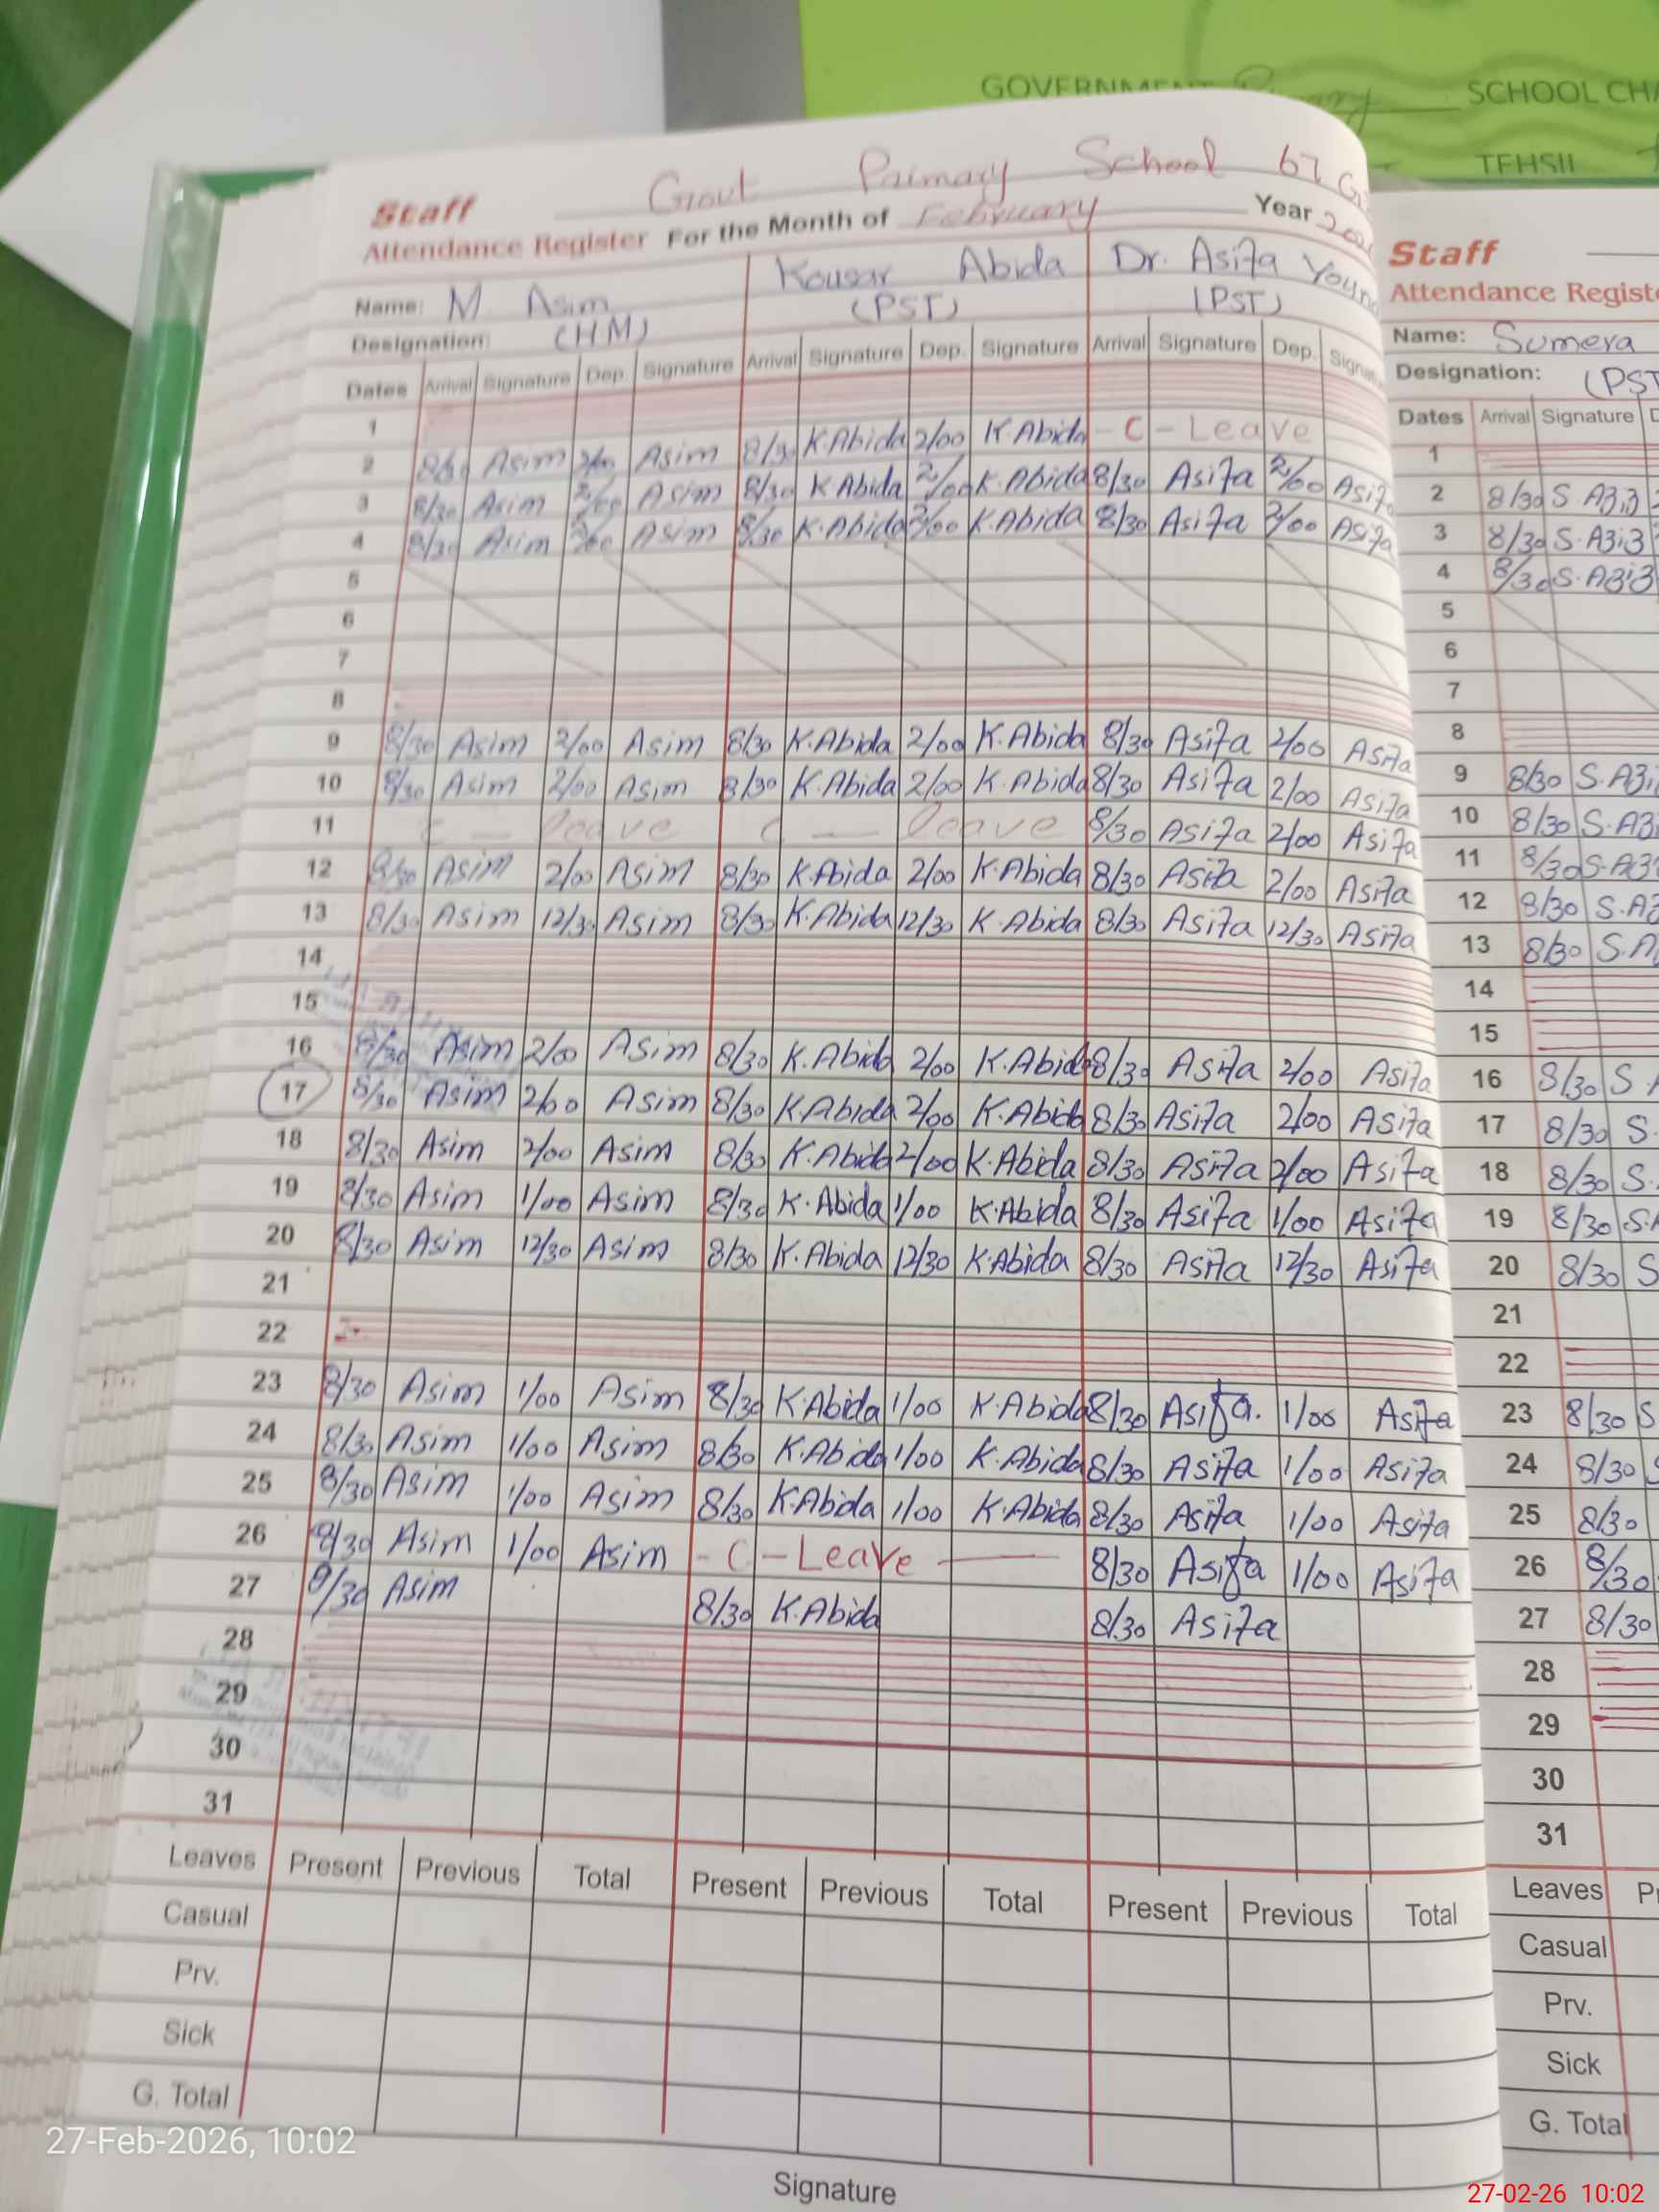 GOVERNMENT Primary SCHOOL CHA
TEHSIL
Govt Primary School 67 G
Staff
Attendance Register For the Month of February Year
Name: M Asim Kousar Abida Dr. Asifa Youn
Designation: (HM) (PST) (PST)
Dates Arrival Signature Dep. Signature Arrival Signature Dep. Signature Arrival Signature Dep. Signat
1
2 8/30 Asim 2/00 Asim 8/30 K.Abida 2/00 K.Abida - C - Leave
3 8/30 Asim 2/00 Asim 8/30 K Abida 2/00 K.Abida 8/30 Asifa 2/00 Asifa
4 8/30 Asim 2/00 Asim 8/30 K.Abida 2/00 K.Abida 8/30 Asifa 2/00 Asifa
5
6
7
8
9 8/30 Asim 2/00 Asim 8/30 K.Abida 2/00 K.Abida 8/30 Asifa 2/00 Asifa
10 8/30 Asim 2/00 Asim 8/30 K.Abida 2/00 K.Abida 8/30 Asifa 2/00 Asifa
11 C - leave C - leave 8/30 Asifa 2/00 Asifa
12 8/30 Asim 2/00 Asim 8/30 K.Abida 2/00 K.Abida 8/30 Asifa 2/00 Asifa
13 8/30 Asim 12/30 Asim 8/30 K.Abida 12/30 K.Abida 8/30 Asifa 12/30 Asifa
14
15
16 8/30 Asim 2/00 Asim 8/30 K.Abida 2/00 K.Abida 8/30 Asifa 2/00 Asifa
17 8/30 Asim 2/00 Asim 8/30 K.Abida 2/00 K.Abida 8/30 Asifa 2/00 Asifa
18 8/30 Asim 2/00 Asim 8/30 K.Abida 2/00 K.Abida 8/30 Asifa 2/00 Asifa
19 8/30 Asim 1/00 Asim 8/30 K.Abida 1/00 K.Abida 8/30 Asifa 1/00 Asifa
20 8/30 Asim 12/30 Asim 8/30 K.Abida 12/30 K.Abida 8/30 Asifa 12/30 Asifa
21
22
23 8/30 Asim 1/00 Asim 8/30 K.Abida 1/00 K.Abida 8/30 Asifa. 1/00 Asifa
24 8/30 Asim 1/00 Asim 8/30 K.Abida 1/00 K.Abida 8/30 Asifa 1/00 Asifa
25 8/30 Asim 1/00 Asim 8/30 K.Abida 1/00 K.Abida 8/30 Asifa 1/00 Asifa
26 8/30 Asim 1/00 Asim - C - Leave 8/30 Asifa 1/00 Asifa
27 8/30 Asim 8/30 K.Abida 8/30 Asifa
28
29
30
31
Leaves Present Previous Total Present Previous Total Present Previous Total
Casual
Prv.
Sick
G. Total
Signature
Staff
Attendance Registe
Name: Sumera
Designation: (PST
Dates Arrival Signature D
1
2 8/30 S Aziz
3 8/30 S.Aziz
4 8/30 S.Aziz
5
6
7
8
9 8/30 S.Azi
10 8/30 S.Az
11 8/30 S.Az
12 8/30 S.Az
13 8/30 S.A
14
15
16 8/30 S
17 8/30 S.
18 8/30 S.
19 8/30 S.A
20 8/30 S
21
22
23 8/30 S
24 8/30 S
25 8/30
26 8/30
27 8/30
28
29
30
31
Leaves Pr
Casual
Prv.
Sick
G. Total
27-Feb-2026, 10:02
27-02-26 10:02